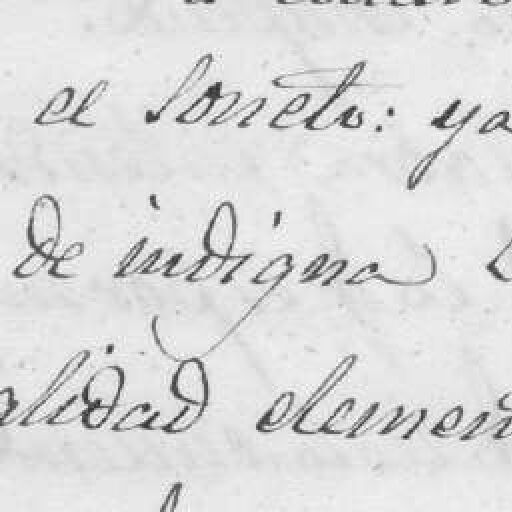 el soneto: ya
de indigna
alidad elemen